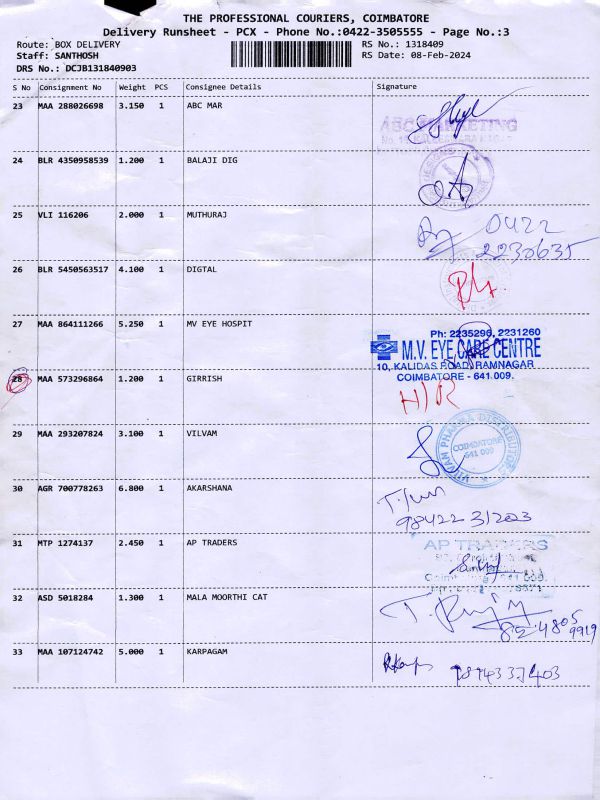 THE PROFESSIONAL COURIERS, COIMBATORE
Delivery Runsheet - PCX - Phone No.:0422-3505555 - Page No.:3
Route: BOX DELIVERY RS No.: 1318409
Staff: SANTHOSH RS Date: 08-Feb-2024
DRS No.: DCJB131840903
S No Consignment No Weight PCS Consignee Details Signature
23 MAA 288026698 3.150 1 ABC MAR
ABC MARKETING
24 BLR 4350958539 1.200 1 BALAJI DIG
25 VLI 116206 2.000 1 MUTHURAJ 0422
2230635
26 BLR 5450563517 4.100 1 DIGTAL
27 MAA 864111266 5.250 1 MV EYE HOSPIT
Ph: 2235296, 2231260
M.V. EYE CARE CENTRE
10, KALIDAS ROAD, RAMNAGAR
COIMBATORE - 641 009.
28 MAA 573296864 1.200 1 GIRRISH
H/R
29 MAA 293207824 3.100 1 VILVAM
PHARMA DISTRIBUTORS
COIMBATORE
641 009
30 AGR 700778263 6.800 1 AKARSHANA
98422 31203
31 MTP 1274137 2.450 1 AP TRADERS
AP TRADERS
32 ASD 5018284 1.300 1 MALA MOORTHI CAT
33 MAA 107124742 5.000 1 KARPAGAM